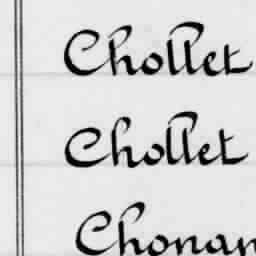 Chollet
Chollet
Chonan